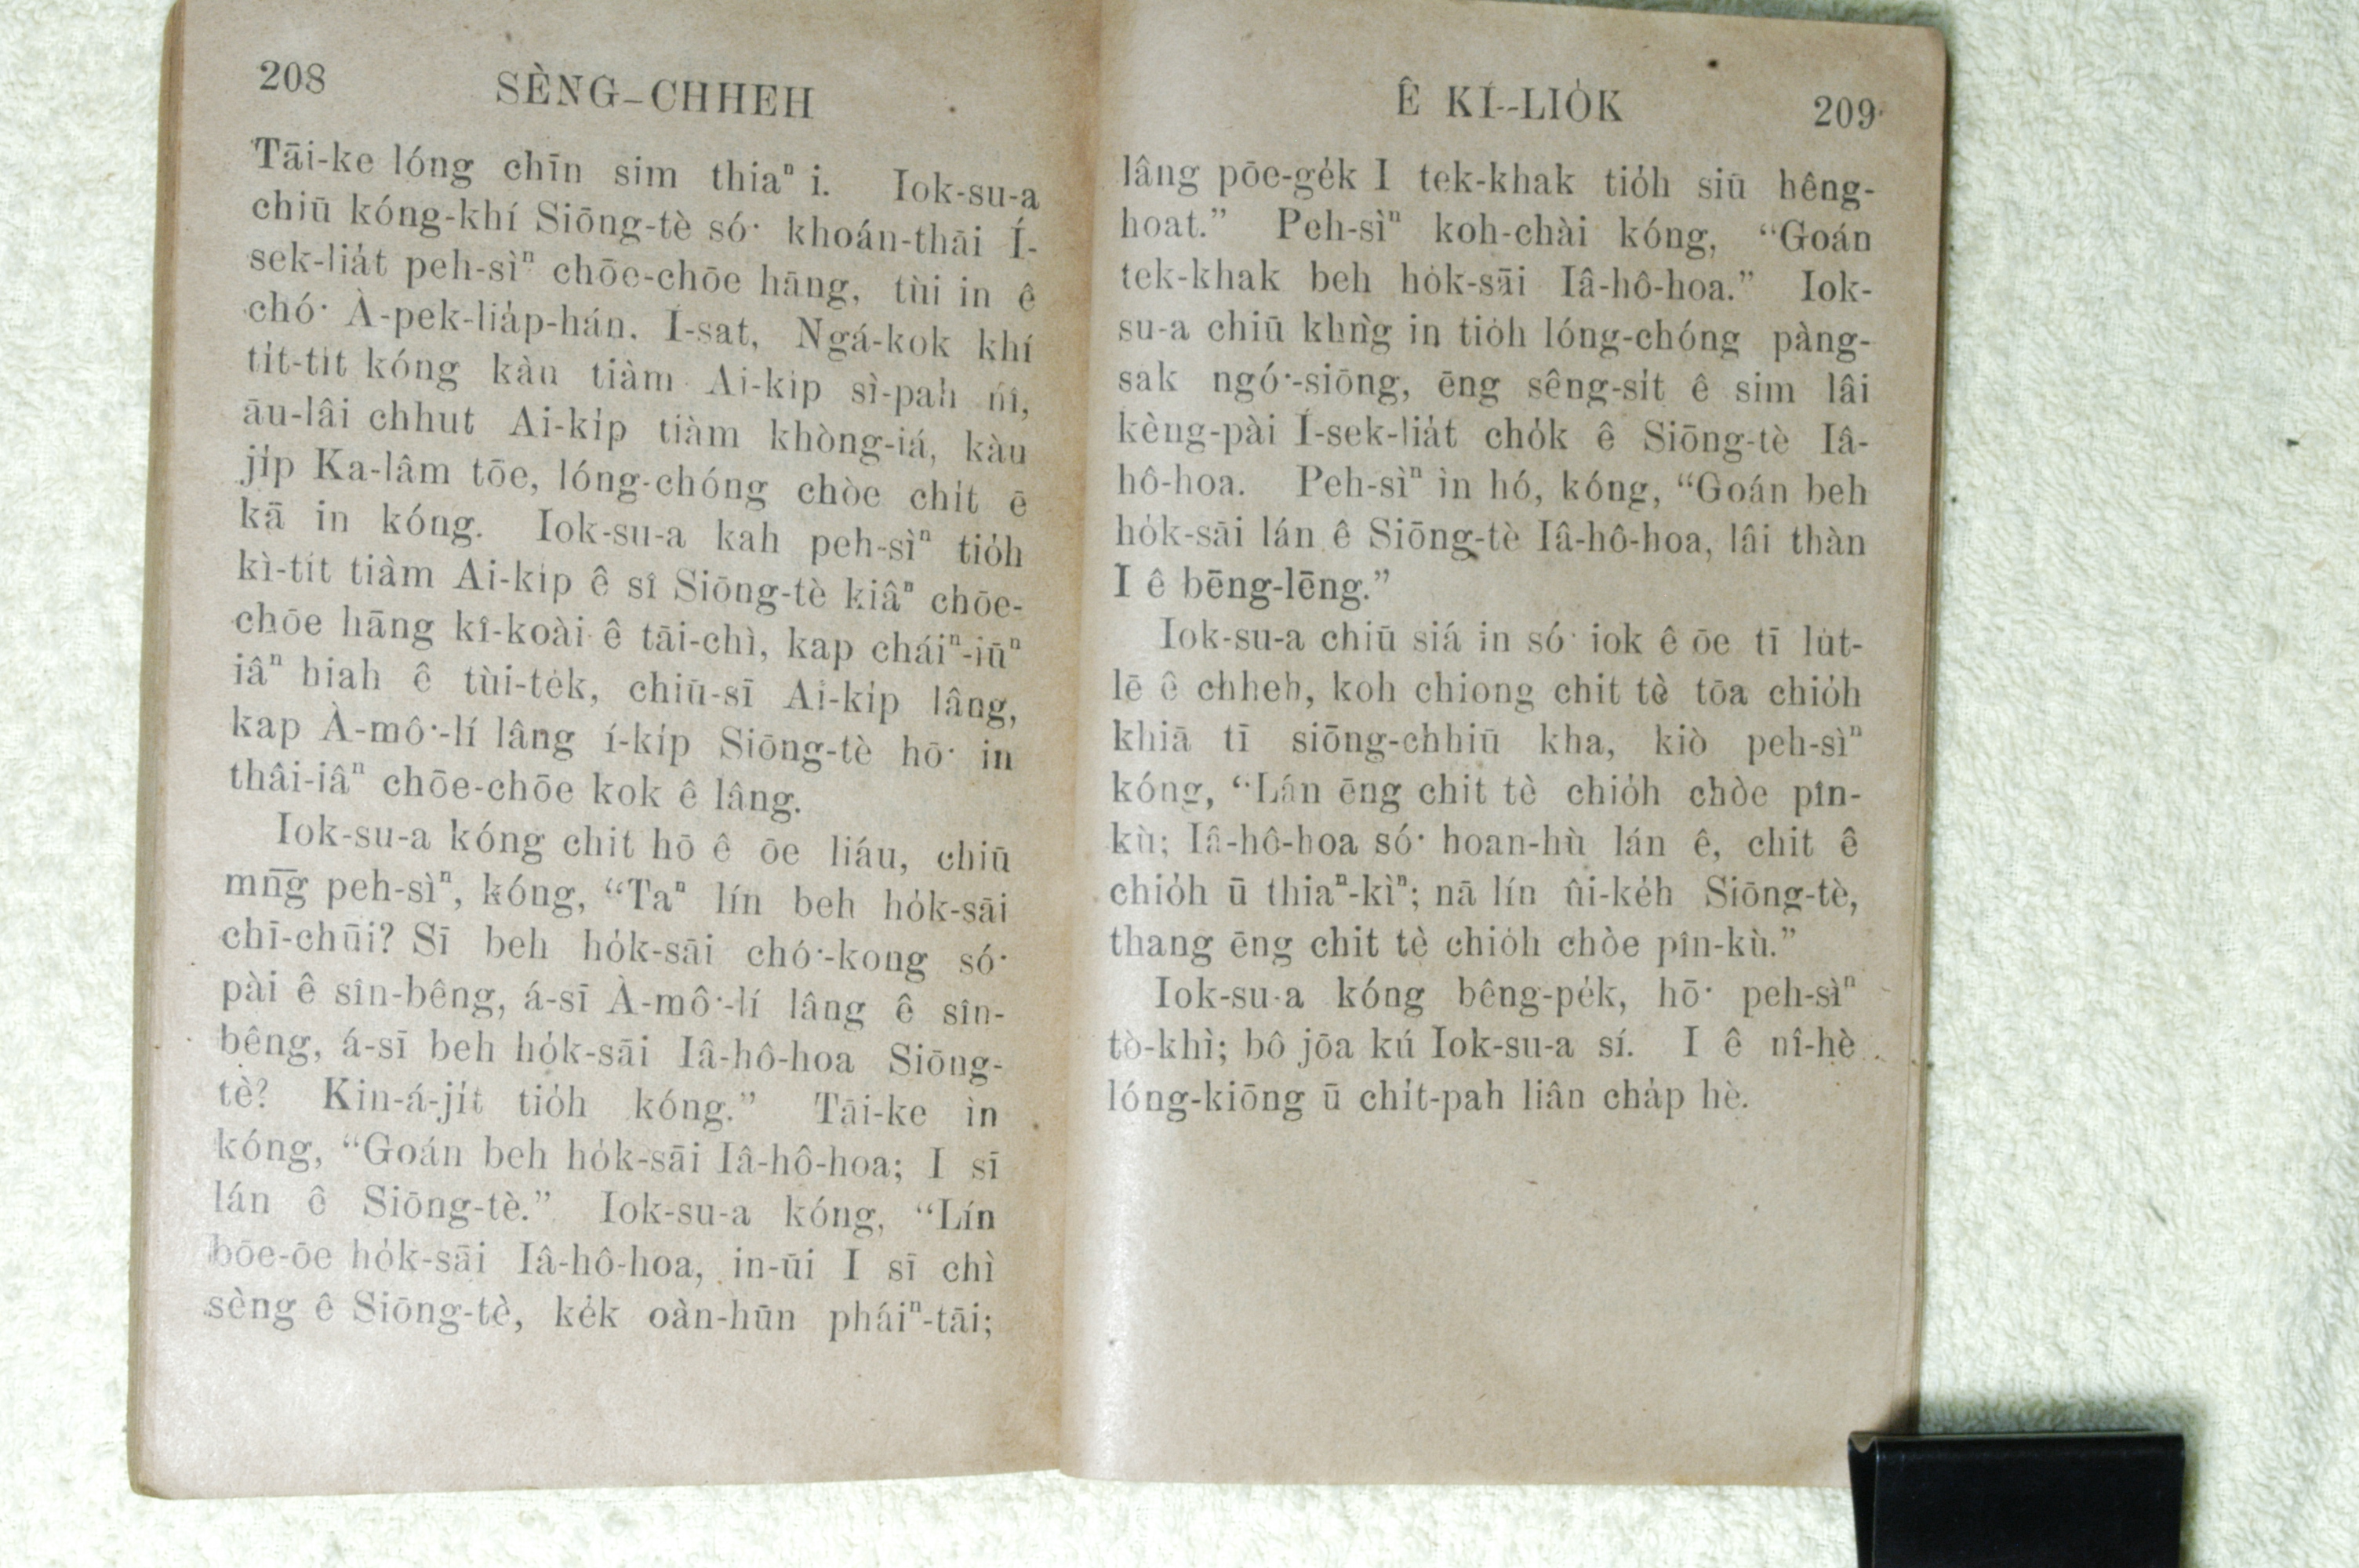 208 SÈNG-CHHEH
Tāi-ke lóng chīn sim thiaⁿ i. Iok-su-a
chiū kóng-khí Siōng-tè só͘ khoán-thāi Í-
sek-lia̍t peh-sìⁿ chōe-chōe hāng, tùi in ê
chó͘ À-pek-lia̍p-hán. Í-sat, Ngá-kok khí
ti̍t-ti̍t kóng kàu tiàm Ai-ki̍p sì-pah nî,
āu-lâi chhut Ai-ki̍p tiàm khòng-iá, kàu
ji̍p Ka-lâm tōe, lóng-chóng chòe chi̍t ē
kā in kóng. Iok-su-a kah peh-sìⁿ tio̍h
kì-tit tiàm Ai-ki̍p ê sî Siōng-tè kiâⁿ chōe-
chōe hāng kî-koài ê tāi-chì, kap cháiⁿ-iūⁿ
iâⁿ hiah ê tùi-te̍k, chiū-sī Ai-ki̍p lâng,
kap À-mô͘-lí lâng í-ki̍p Siōng-tè hō͘ in
thâi-iâⁿ chōe-chōe kok ê lâng.
Iok-su-a kóng chit hō ê ōe liáu, chiū
mn̄g peh-sìⁿ, kóng, “Taⁿ lín beh ho̍k-sāi
chī-chūi? Sī beh ho̍k-sāi chó͘-kong só͘
pài ê sîn-bêng, á-sī À-mô͘-lí lâng ê sîn-
bêng, á-sī beh ho̍k-sāi Iâ-hô-hoa Siōng-
tè? Kin-á-ji̍t tio̍h kóng.” Tāi-ke ìn
kóng, “Goán beh ho̍k-sāi Iâ-hô-hoa; I sī
lán ê Siōng-tè.” Iok-su-a kóng, “Lín
bōe-ōe ho̍k-sāi Iâ-hô-hoa, in-ūi I sī chì
sèng ê Siōng-tè, ke̍k oàn-hūn pháiⁿ-tāi;
Ê KÍ--LIO̍K 209
lâng pōe-ge̍k I tek-khak tio̍h siū hêng-
hoat.” Peh-sìⁿ koh-chài kóng, “Goán
tek-khak beh ho̍k-sāi Iâ-hô-hoa.” Iok-
su-a chiū khǹg in tio̍h lóng-chóng pàng-
sak ngó͘-siōng, ēng sêng-si̍t ê sim lâi
kèng-pài Í-sek-lia̍t cho̍k ê Siōng-tè Iâ-
hô-hoa. Peh-sìⁿ ìn hó, kóng, “Goán beh
ho̍k-sāi lán ê Siōng-tè Iâ-hô-hoa, lâi thàn
I ê bēng-lēng.”
Iok-su-a chiū siá in só͘ iok ê ōe tī lu̍t-
lē ê chheh, koh chiong chit tè tōa chio̍h
khiā tī siōng-chhiū kha, kiò peh-sìⁿ
kóng, “Lán ēng chit tè chio̍h chòe pîn-
kù; Iâ-hô-hoa só͘ hoan-hù lán ê, chit ê
chio̍h ū thiaⁿ-kìⁿ; nā lín ûi-ke̍h Siōng-tè,
thang ēng chit tè chio̍h chòe pîn-kù.”
Iok-su-a kóng bêng-pe̍k, hō͘ peh-sìⁿ
tò-khì; bô jōa kú Iok-su-a sí. I ê nî-hè
lóng-kiōng ū chi̍t-pah liân cha̍p hè.